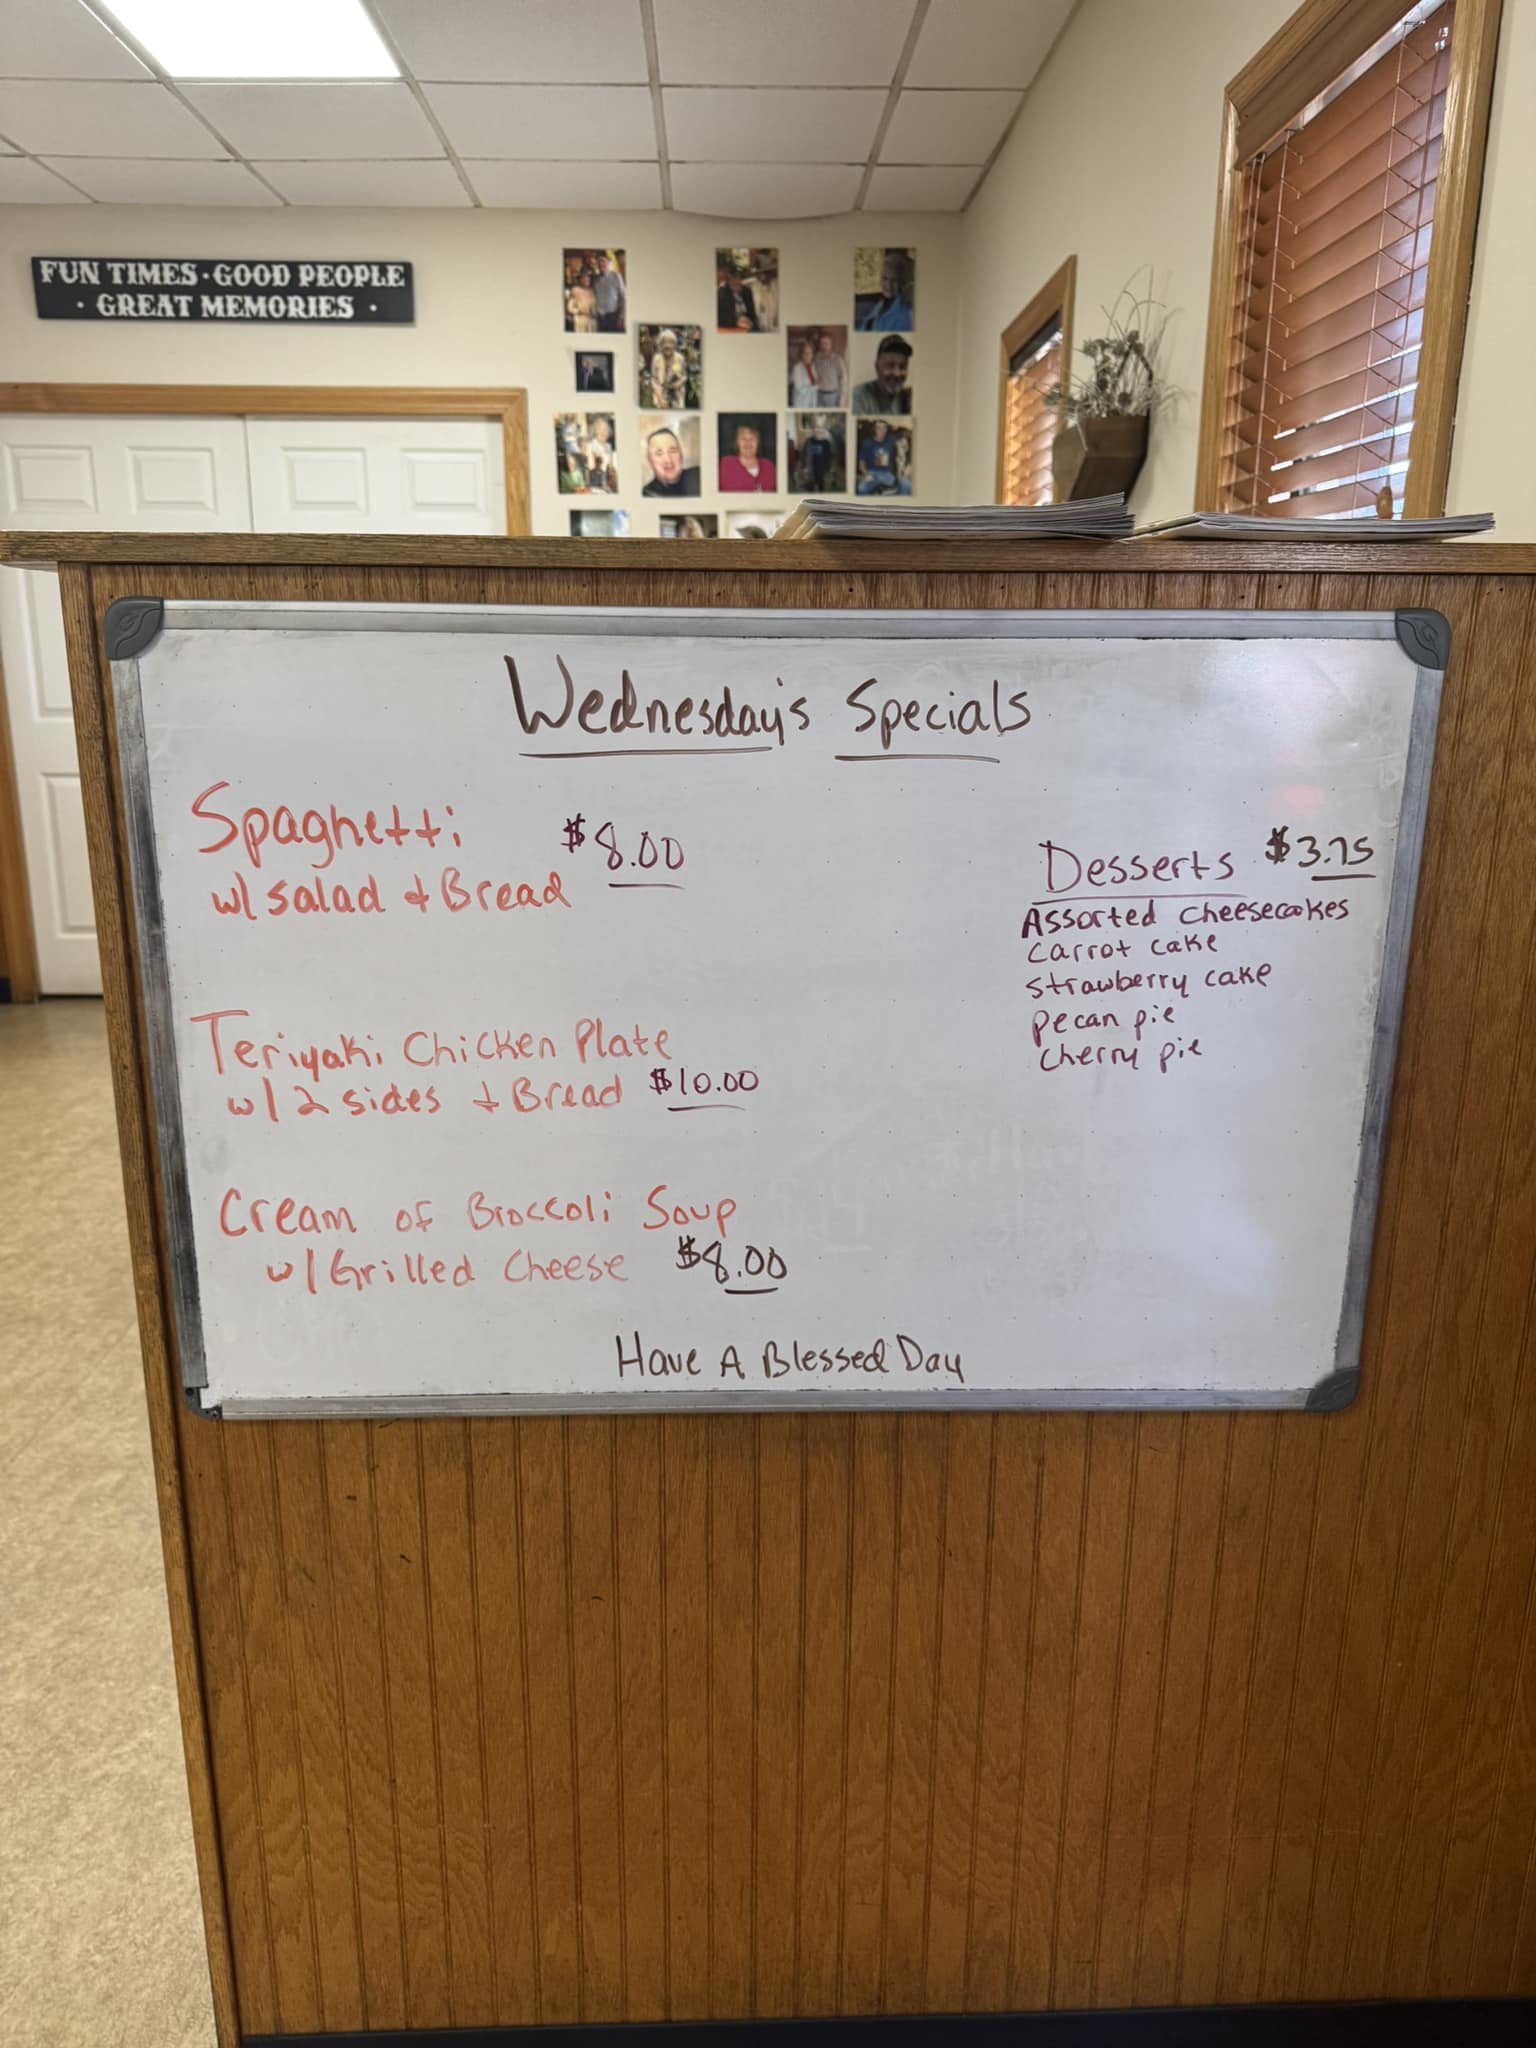 FUN TIMES · GOOD PEOPLE
· GREAT MEMORIES ·
Wednesday's Specials
Spaghetti
w/ salad + Bread $8.00
Teriyaki Chicken Plate
w/ 2 sides + Bread $10.00
Cream of Broccoli Soup
w/ Grilled Cheese $8.00
Desserts $3.75
Assorted cheesecakes
carrot cake
strawberry cake
pecan pie
cherry pie
Have A Blessed Day